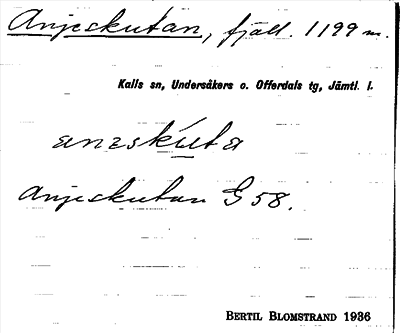 Anjeskutan, fjäll. 1199 m.
Kalls sn, Undersåkers o. Offerdals tg, Jämtl. l.
Anjeskutan G 58.
BERTIL BLOMSTRAND 1936